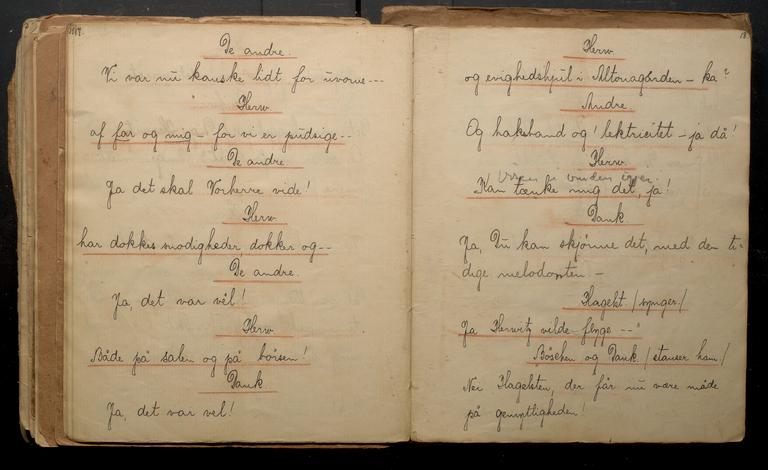 De andre.
Vi var nu kanske lidt for uvorne ---
Herw.
af far og mig – for vi er pudsige --
De andre.
Ja det skal Vorherre vide!
Herw.
har dokkes snodigheder, dokker og --
De andre.
Ja, det var vel!
Herw.
Både på salen og på börsen!
Dank
Ja, det var vel!
18
Herw.
og evighedshjul i Altonagården – ka?
Andre.
Og haksband og! lektricitet – ja då!
Herw.
Visen er
Kan tænke mig det, ja!
Dank.
Ja, Du kan skjønne det, med den ti-
dige melodien –
Hagelst. /synger/
Ja Herwitz vilde flyge --"
Böschen og Dank. /stanser ham/
Nei Hagelsten, der får nu være måde
på gemyttigheden!